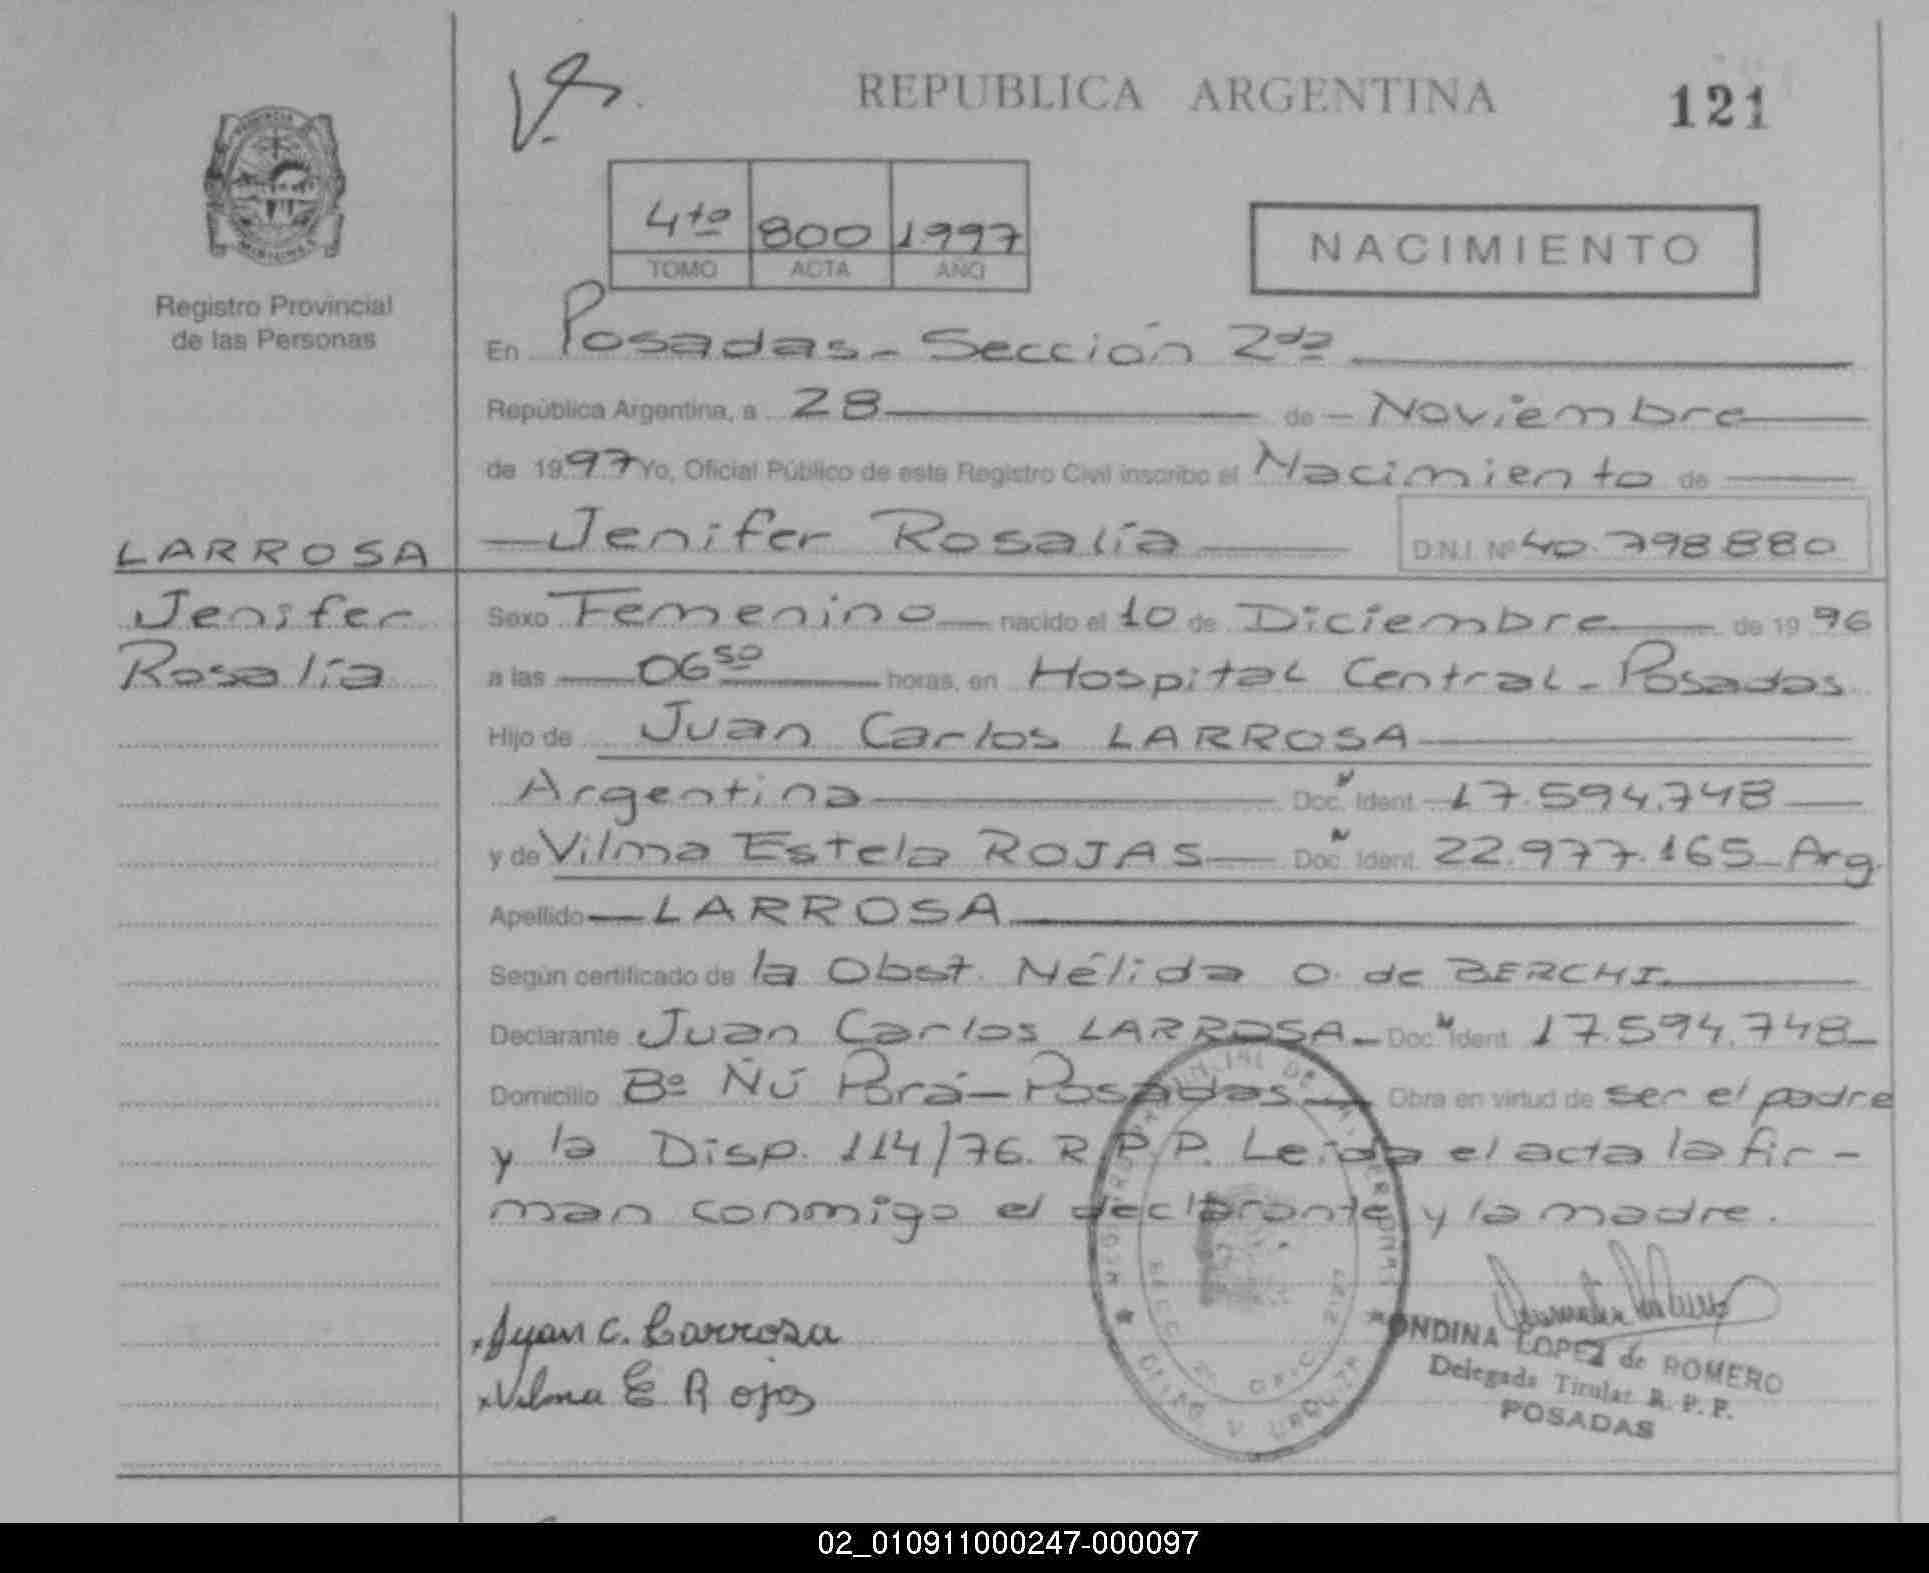 REPUBLICA ARGENTINA
121
4to 800 1997
TOMO ACTA AÑO
NACIMIENTO
Registro Provincial
de las Personas
En Posadas - Sección 2da
República Argentina, a 28 de Noviembre
de 1997 Yo, Oficial Público de este Registro Civil inscribo el Nacimiento de
LARROSA
Jenifer
Rosalía
Jenifer Rosalía D.N.I. Nº 40.798.880
Sexo Femenino nacido el 10 de Diciembre de 1996
a las 06 50 horas, en Hospital Central - Posadas
Hijo de Juan Carlos LARROSA
Argentina Doc. Ident. 17.594.748
y de Vilma Estela ROJAS Doc. Ident. 22.977.165 - Arg.
Apellido LARROSA
Según certificado de la Obst. Nélida O. de BERCHI
Declarante Juan Carlos LARROSA - Doc. Ident. 17.594.748
Domicilio Bº Ñú Porá - Posadas Obra en virtud de ser el padre
y la Disp. 114/76. R.P.P. Leida el acta la fir-
man conmigo el declarante y la madre.
Juan C. Larrosa
Vilma E Rojas
ONDINA LOPEZ de ROMERO
Delegada Titular R. P. P.
POSADAS
02_010911000247-000097